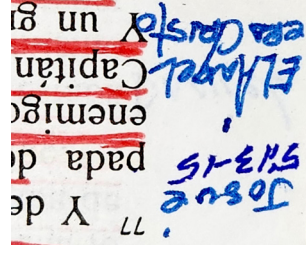 Josue
5:13-15
El Angel
era Cristo
77 Y de
pada de
enemigo
Capitán
Y un